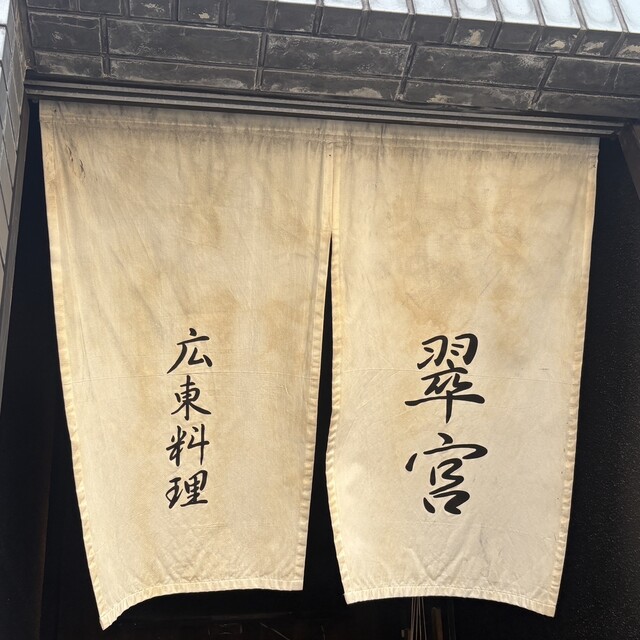 翠宮
広東料理